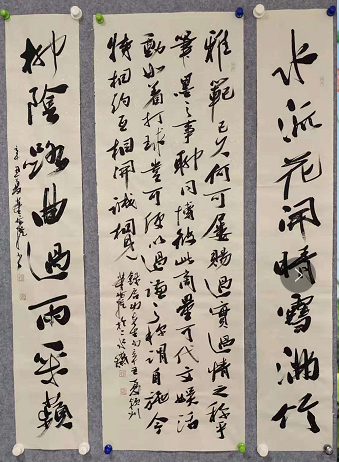 水流花開晴雪滿竹
雅範已久何可屢賜過實過情之稱乎
筆墨之事聊同博彼此商量可代文娛活
動如着打球豈可便以過謙之稱謂自施今
特相約互相開誠相見
柳陰路曲過雨采蘋
辛丑夏